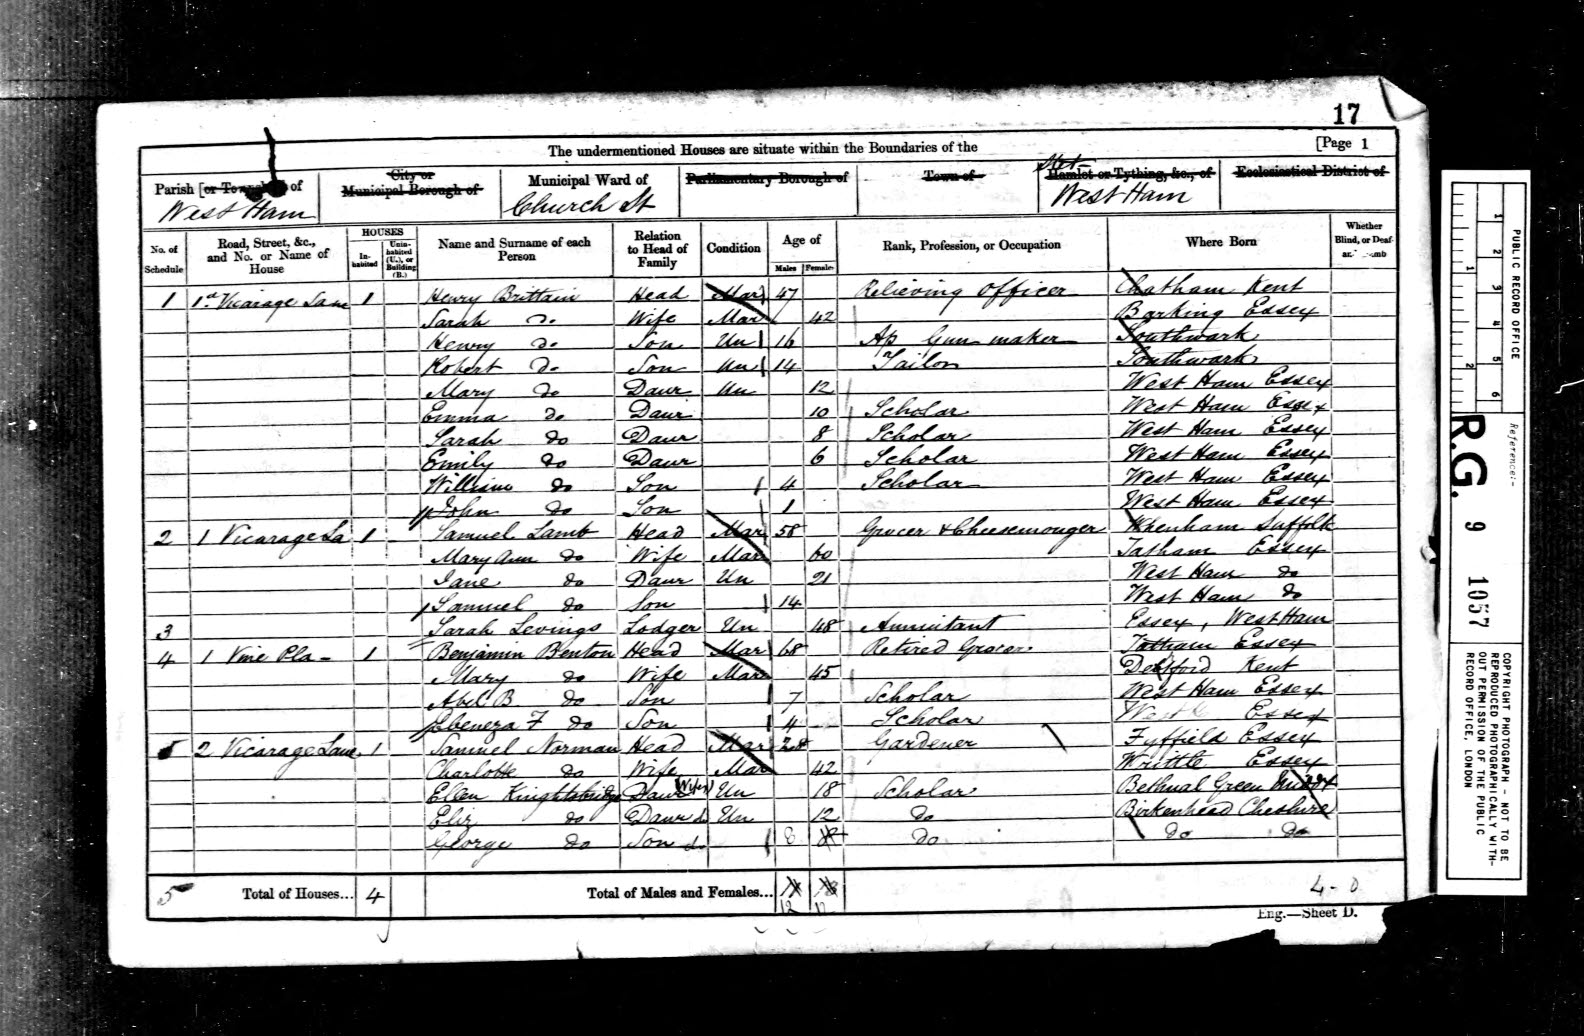 17
The undermentioned Houses are situate within the Boundaries of the [Page 1
Parish [or Township] of City or Municipal Borough of Municipal Ward of Parliamentary Borough of Town of Hamlet or Tything, &c., of Ecclesiastical District of
West Ham Church St West Ham
No. of Schedule Road, Street, &c., and No. or Name of House HOUSES Inhabited Uninhabited (U.), or Building (B.) Name and Surname of each Person Relation to Head of Family Condition Age of Males Females Rank, Profession, or Occupation Where Born Whether Blind, or Deaf-and-Dumb
1 1a Vicarage Lane 1 Henry Brittain Head Mar 47 Relieving Officer Chatham Kent
Sarah Do Wife Mar 42 Barking Essex
Henry Do Son Un 16 Ap Gun maker Southwark
Robert Do Son Un 14 Tailor Southwark
Mary Do Daur Un 12 West Ham Essex
Emma Do Daur 10 Scholar West Ham Essex
Sarah Do Daur 8 Scholar West Ham Essex
Emily Do Daur 6 Scholar West Ham Essex
William Do Son 4 Scholar West Ham Essex
John Do Son 1 West Ham Essex
2 1 Vicarage La 1 Samuel Lamb Head Mar 58 Grocer & Cheesemonger Whenham Suffolk
Mary Ann Do Wife Mar 60 Tatham Essex
Jane Do Daur Un 21 West Ham Do
Samuel Do Son 14 West Ham Do
3 Sarah Levings Lodger Un 48 Annuitant Essex, West Ham
4 1 Vine Pla 1 Benjamin Benton Head Mar 68 Retired Grocer Tatham Essex
Mary Do Wife Mar 45 Deptford Kent
Abel B. Do Son 7 Scholar West Ham Essex
Ebeneza F Do Son 4 Scholar West Essex
5 2 Vicarage Lane 1 Samuel Norman Head Mar 28 Gardener Fyffield Essex
Charlotte Do Wife Mar 42 Writtle Essex
Ellen Knightsbridge Daur (Wifes) Un 18 Scholar Bethnal Green Middx
Eliz Do Daur do Un 12 Do Birkenhead Cheshire
George Do Son do 8 Do Do Do
5 Total of Houses... 4 Total of Males and Females... 12 12
4-0
Eng.—Sheet D.
PUBLIC RECORD OFFICE
1 2 3 4 5 6
1 2
Reference:-
R.G. 9 1057
COPYRIGHT PHOTOGRAPH - NOT TO BE REPRODUCED PHOTOGRAPHICALLY WITHOUT PERMISSION OF THE PUBLIC RECORD OFFICE, LONDON